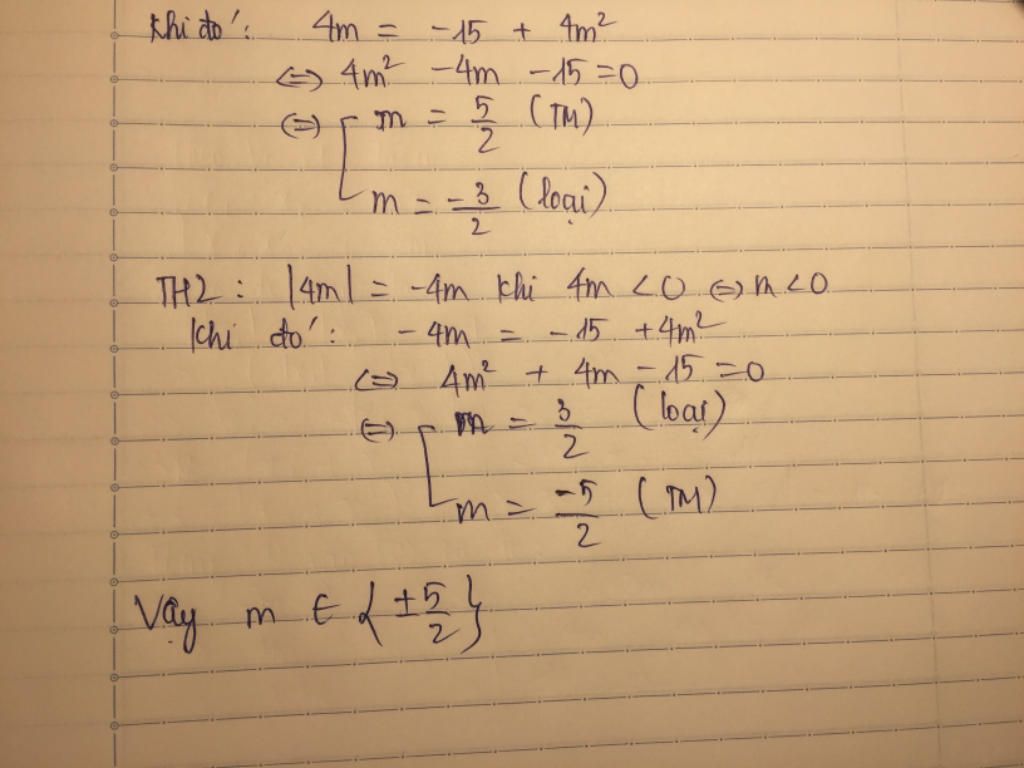 Khi đó: 4m = -15 + 4m²
⇔ 4m² - 4m - 15 = 0
⇔ [ m = 5/2 (TM)
m = -3/2 (loại)
TH2: |4m| = -4m khi 4m < 0 ⇔ m < 0
Khi đó: -4m = -15 + 4m²
⇔ 4m² + 4m - 15 = 0
⇔ [ m = 3/2 (loại)
m = -5/2 (TM)
Vậy m ∈ {±5/2}